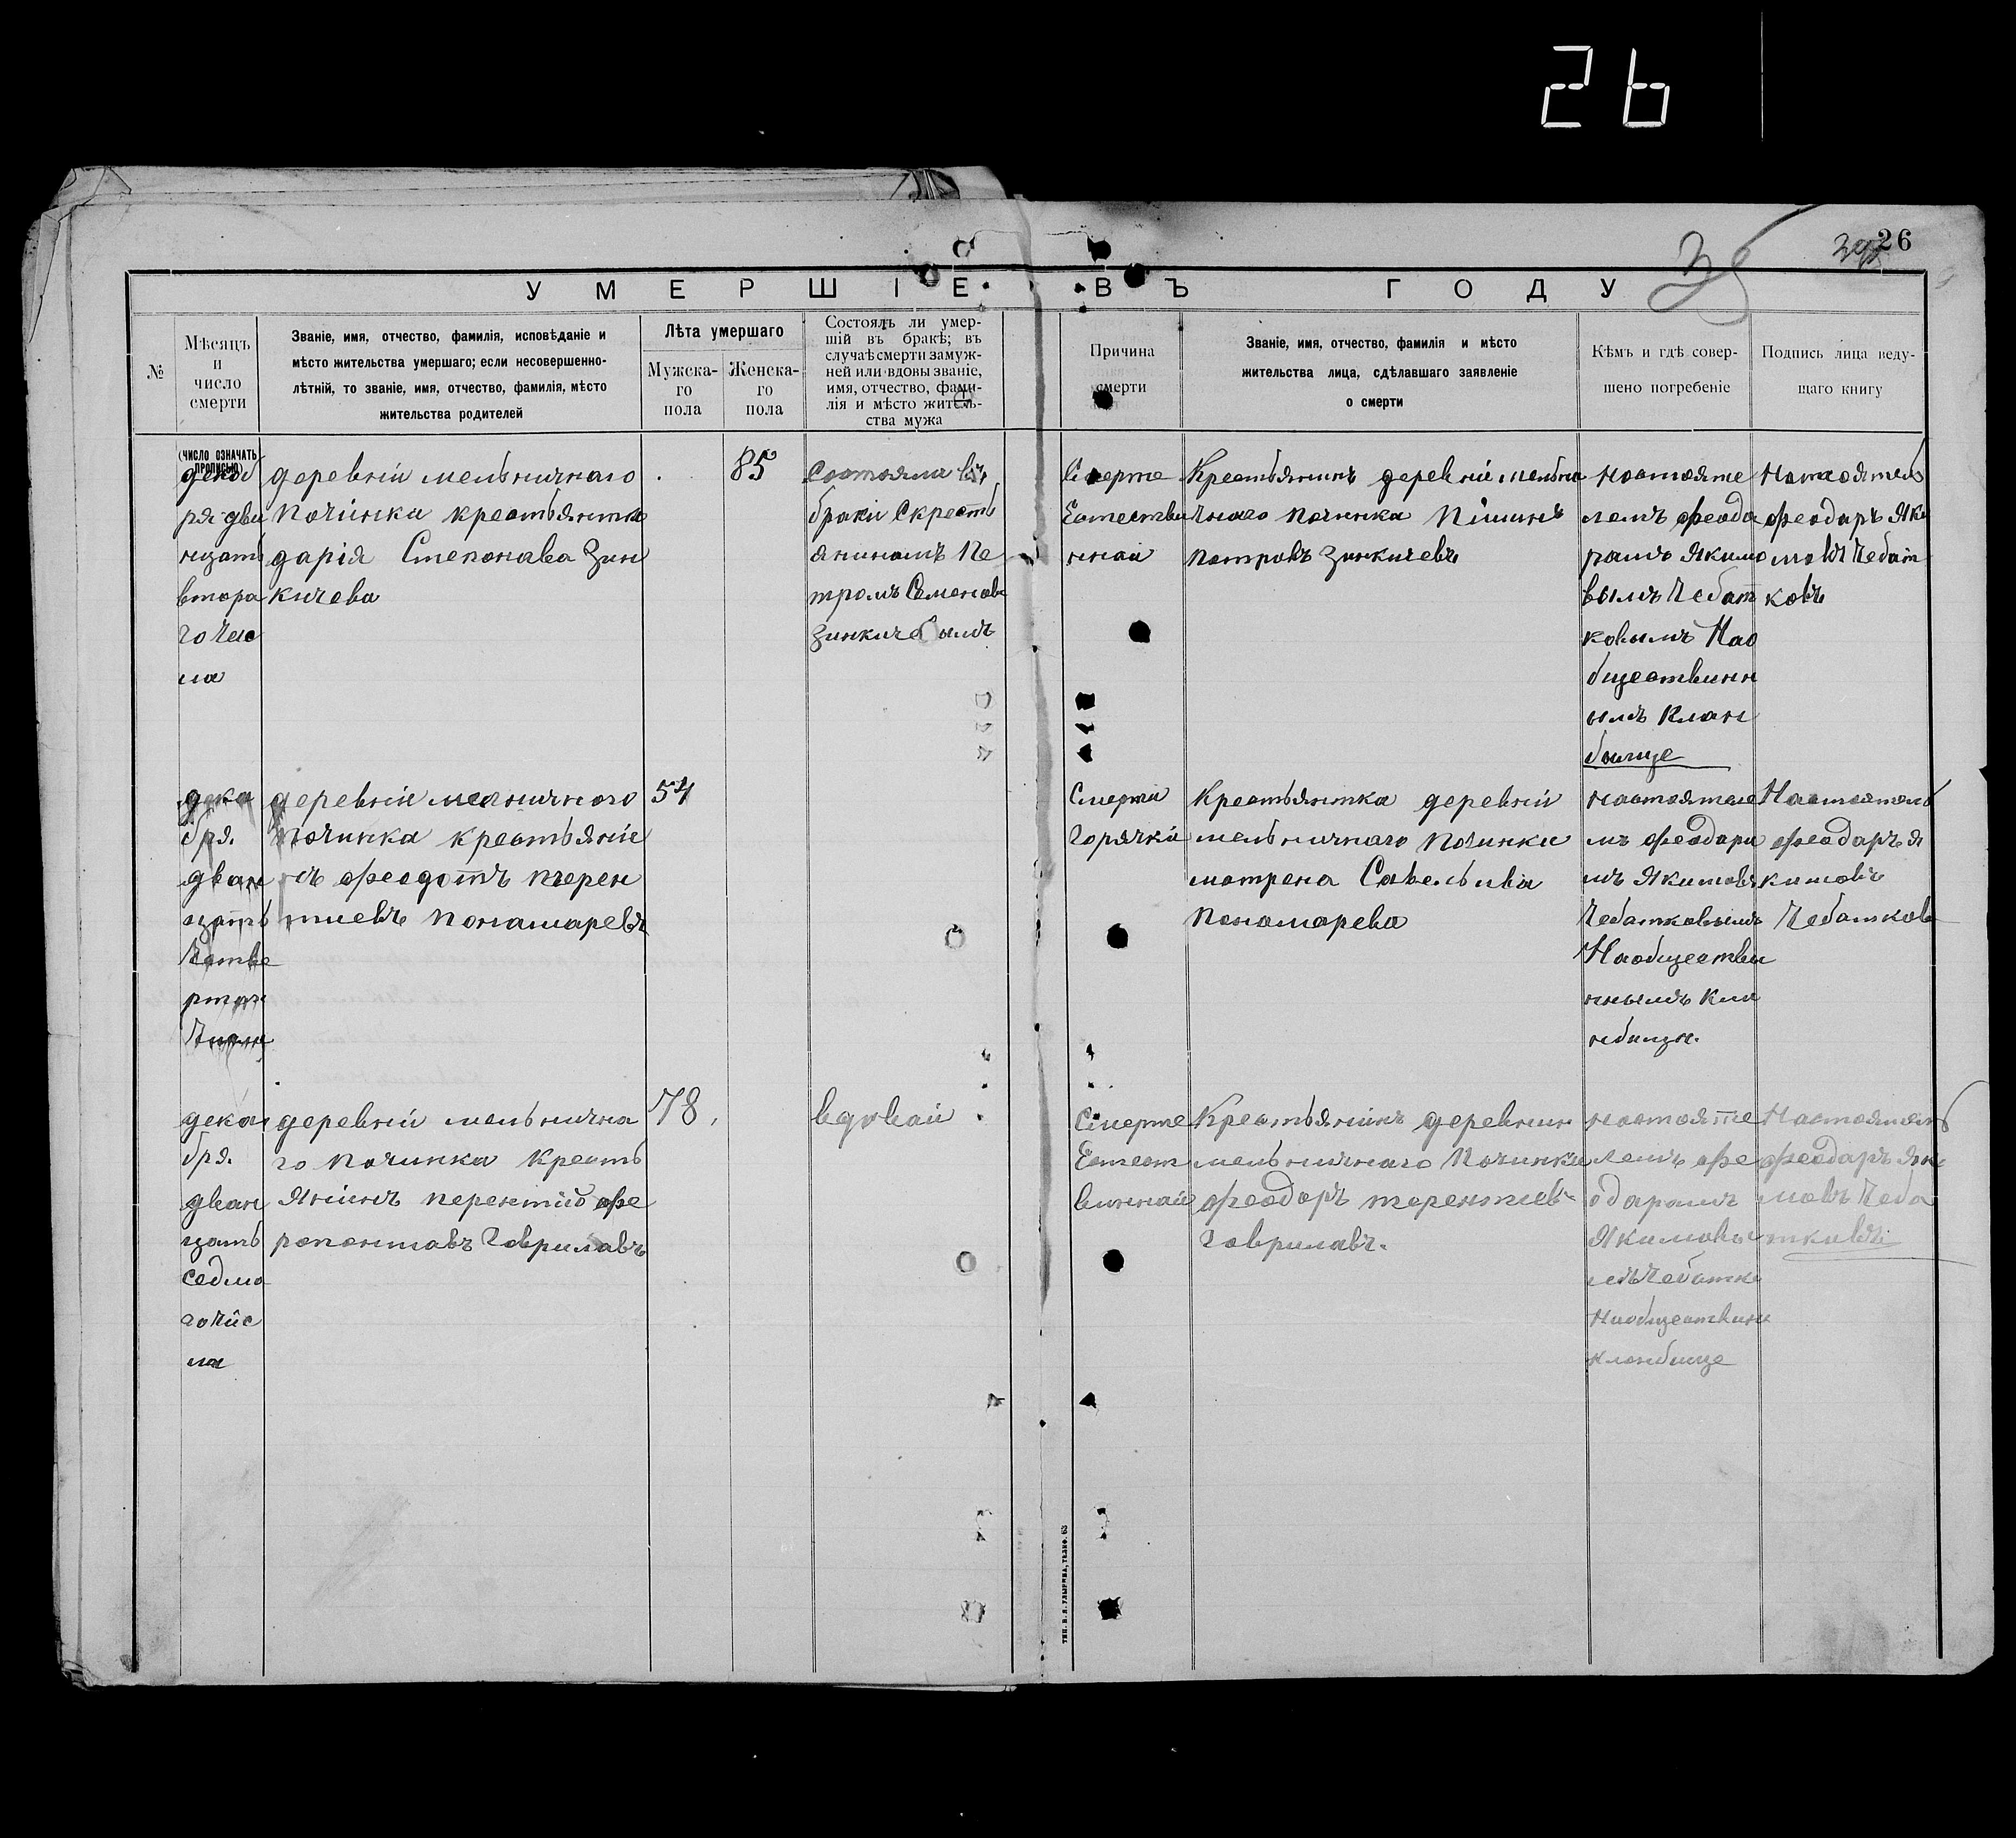 26
26
УМЕРШІЕ ВЪ ГОДУ
№
Мѣсяцъ
и
число
смерти
Званіе, имя, отчество, фамилія, исповѣданіе и
мѣсто жительства умершаго; если несовершенно-
лѣтній, то званіе, имя, отчество, фамилія, мѣсто
жительства родителей
Лѣта умершаго
Мужска-
го
пола
Женска-
го
пола
Состоялъ ли умер-
шій въ бракѣ; въ
случаѣ смерти замуж-
ней или вдовы званіе,
имя, отчество, фами-
лія и мѣсто житель-
ства мужа
Причина
смерти
Званіе, имя, отчество, фамилія и мѣсто
жительства лица, сдѣлавшаго заявленіе
о смерти
Кѣмъ и гдѣ совер-
шено погребеніе
Подпись лица веду-
щаго книгу
(число означать
прописью)
декоб
ря дви
нцать
втора
го чис
ла
деревніи мельничнаго
починка крестьянка
дарія Степонава Зин
кичева
85
Состояла въ
браки Скресть
яниномъ Пе
тромъ Семенов
Зинкичевымъ
Смерте
Естестви
ннаи
Крестьянинъ деревніи мельни
чнаго починка Пiминъ
петровъ Зинкичевъ
настояте
лемъ феода
ромъ Якимо
вымъ Чебат
ковымъ Нао
бществинн
ымъ Клан
бище
Настоятель
феодаръ Яки
мовъ Чебат
ковъ
дека
бря.
дван
цать
Четве
ртаг
Числа
деревніи меляничного
починка крестьяніи
нъ феодотъ терен
тиевъ Понамаревъ
54
Смерти
Горячки
Крестьянка деревніи
мельничнаго починки
матрена Савельива
Понамарева
настоятеле
мъ феодара
мъ Якимовъ
Чебатковымъ
Наобществи
ннымъ Кла
нбищи.
Настоятель
феодаръ Я
кимовъ
Чебатков
декаг
бря.
дван
цать
седмо
го чис
ла
деревніи мельнична
го починка Кресть
Янiинъ перентiй фе
рапонтавъ Говрилавъ
78.
вдоваи
Смерте
Естест
виннаи
Крестьянiинъ деревнии
мельничнаго Починка
феодоръ терентиев
Говрилавъ.
настояте
лемъ фе
одарамъ
Якимовы
мъ Чебатко
Наобществин
кланбище
Настоятель
феодаръ Яки
мовъ Чеба
тковъ